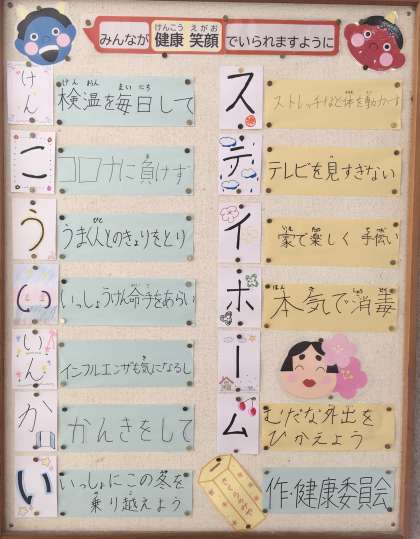 みんなが健康笑顔でいられますように
けん 検温を毎日して
こ コロナに負けず
う うまく人とのきょりをとり
い いっしょうけん命手をあらい
いん インフルエンザも気になるし
か かんきをして
い いっしょにこの冬を
乗り越えよう
ス ストレッチなど体を動かす
テ テレビを見すぎない
イ 家で楽しく手伝い
ホ 本気で消毒
ー
ム むだな外出を
ひかえよう
作・健康委員会